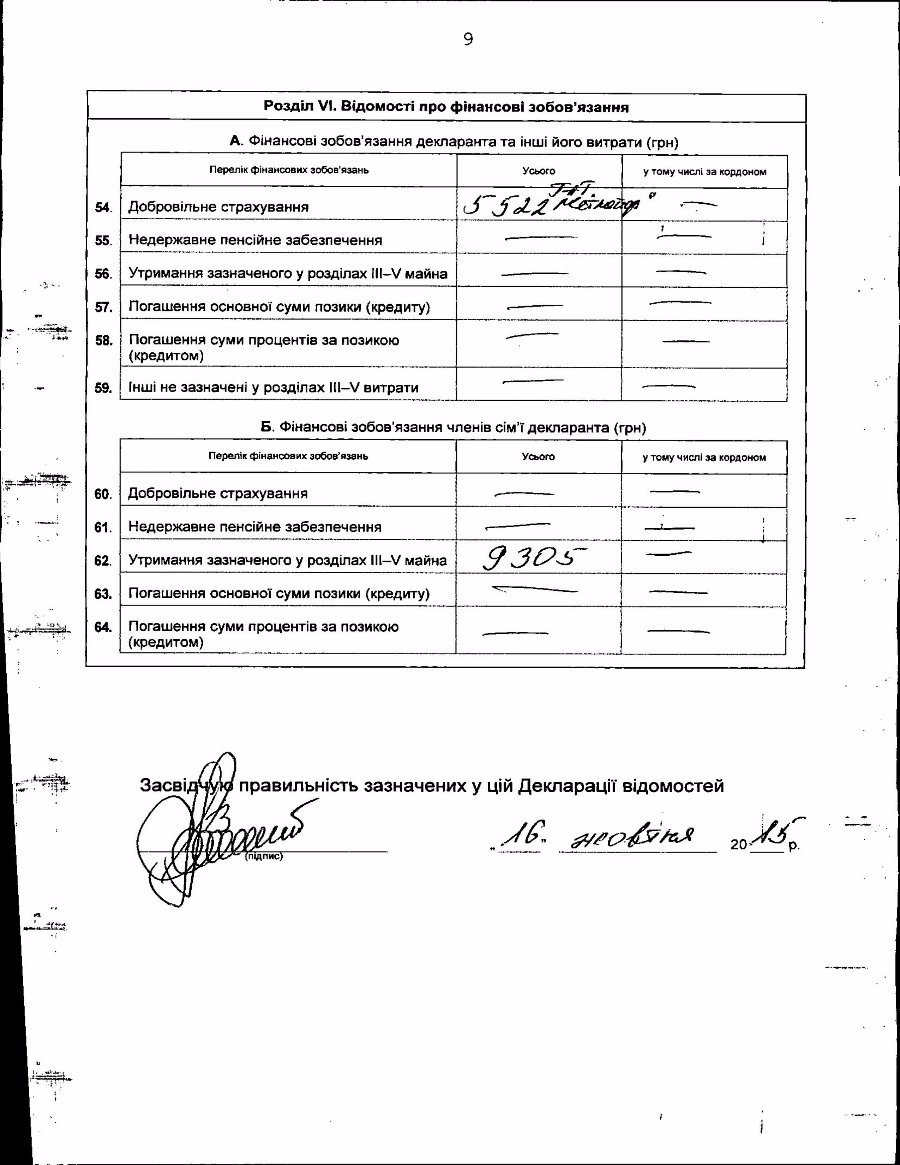 9
Розділ VI. Відомості про фінансові зобов'язання
А. Фінансові зобов'язання декларанта та інші його витрати (грн)
Перелік фінансових зобов'язань Усього у тому числі за кордоном
54. Добровільне страхування 5522 —
55. Недержавне пенсійне забезпечення — —
56. Утримання зазначеного у розділах III–V майна — —
57. Погашення основної суми позики (кредиту) — —
58. Погашення суми процентів за позикою — —
(кредитом)
59. Інші не зазначені у розділах III–V витрати — —
Б. Фінансові зобов'язання членів сім'ї декларанта (грн)
Перелік фінансових зобов'язань Усього у тому числі за кордоном
60. Добровільне страхування — —
61. Недержавне пенсійне забезпечення — —
62. Утримання зазначеного у розділах III–V майна 9305 —
63. Погашення основної суми позики (кредиту) — —
64. Погашення суми процентів за позикою — —
(кредитом)
Засвідчую правильність зазначених у цій Декларації відомостей
(підпис) „16" жовтня 2015 р.